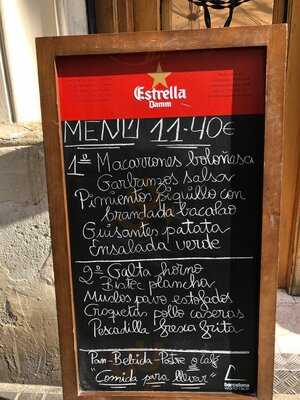 Estrella
Damm
MENÚ 11.40€
1º Macarrones boloñesa
Garbanzos salsa
Pimientos Piquillo con
brandada bacalao
Guisantes patata
Ensalada verde
2º Galta horno
Bistec plancha
Muslos pavo estofados
Croquetas pollo caseras
Pescadilla fresca frita
Pan-Bebida-Postre o café
"Comida para llevar"
barcelona